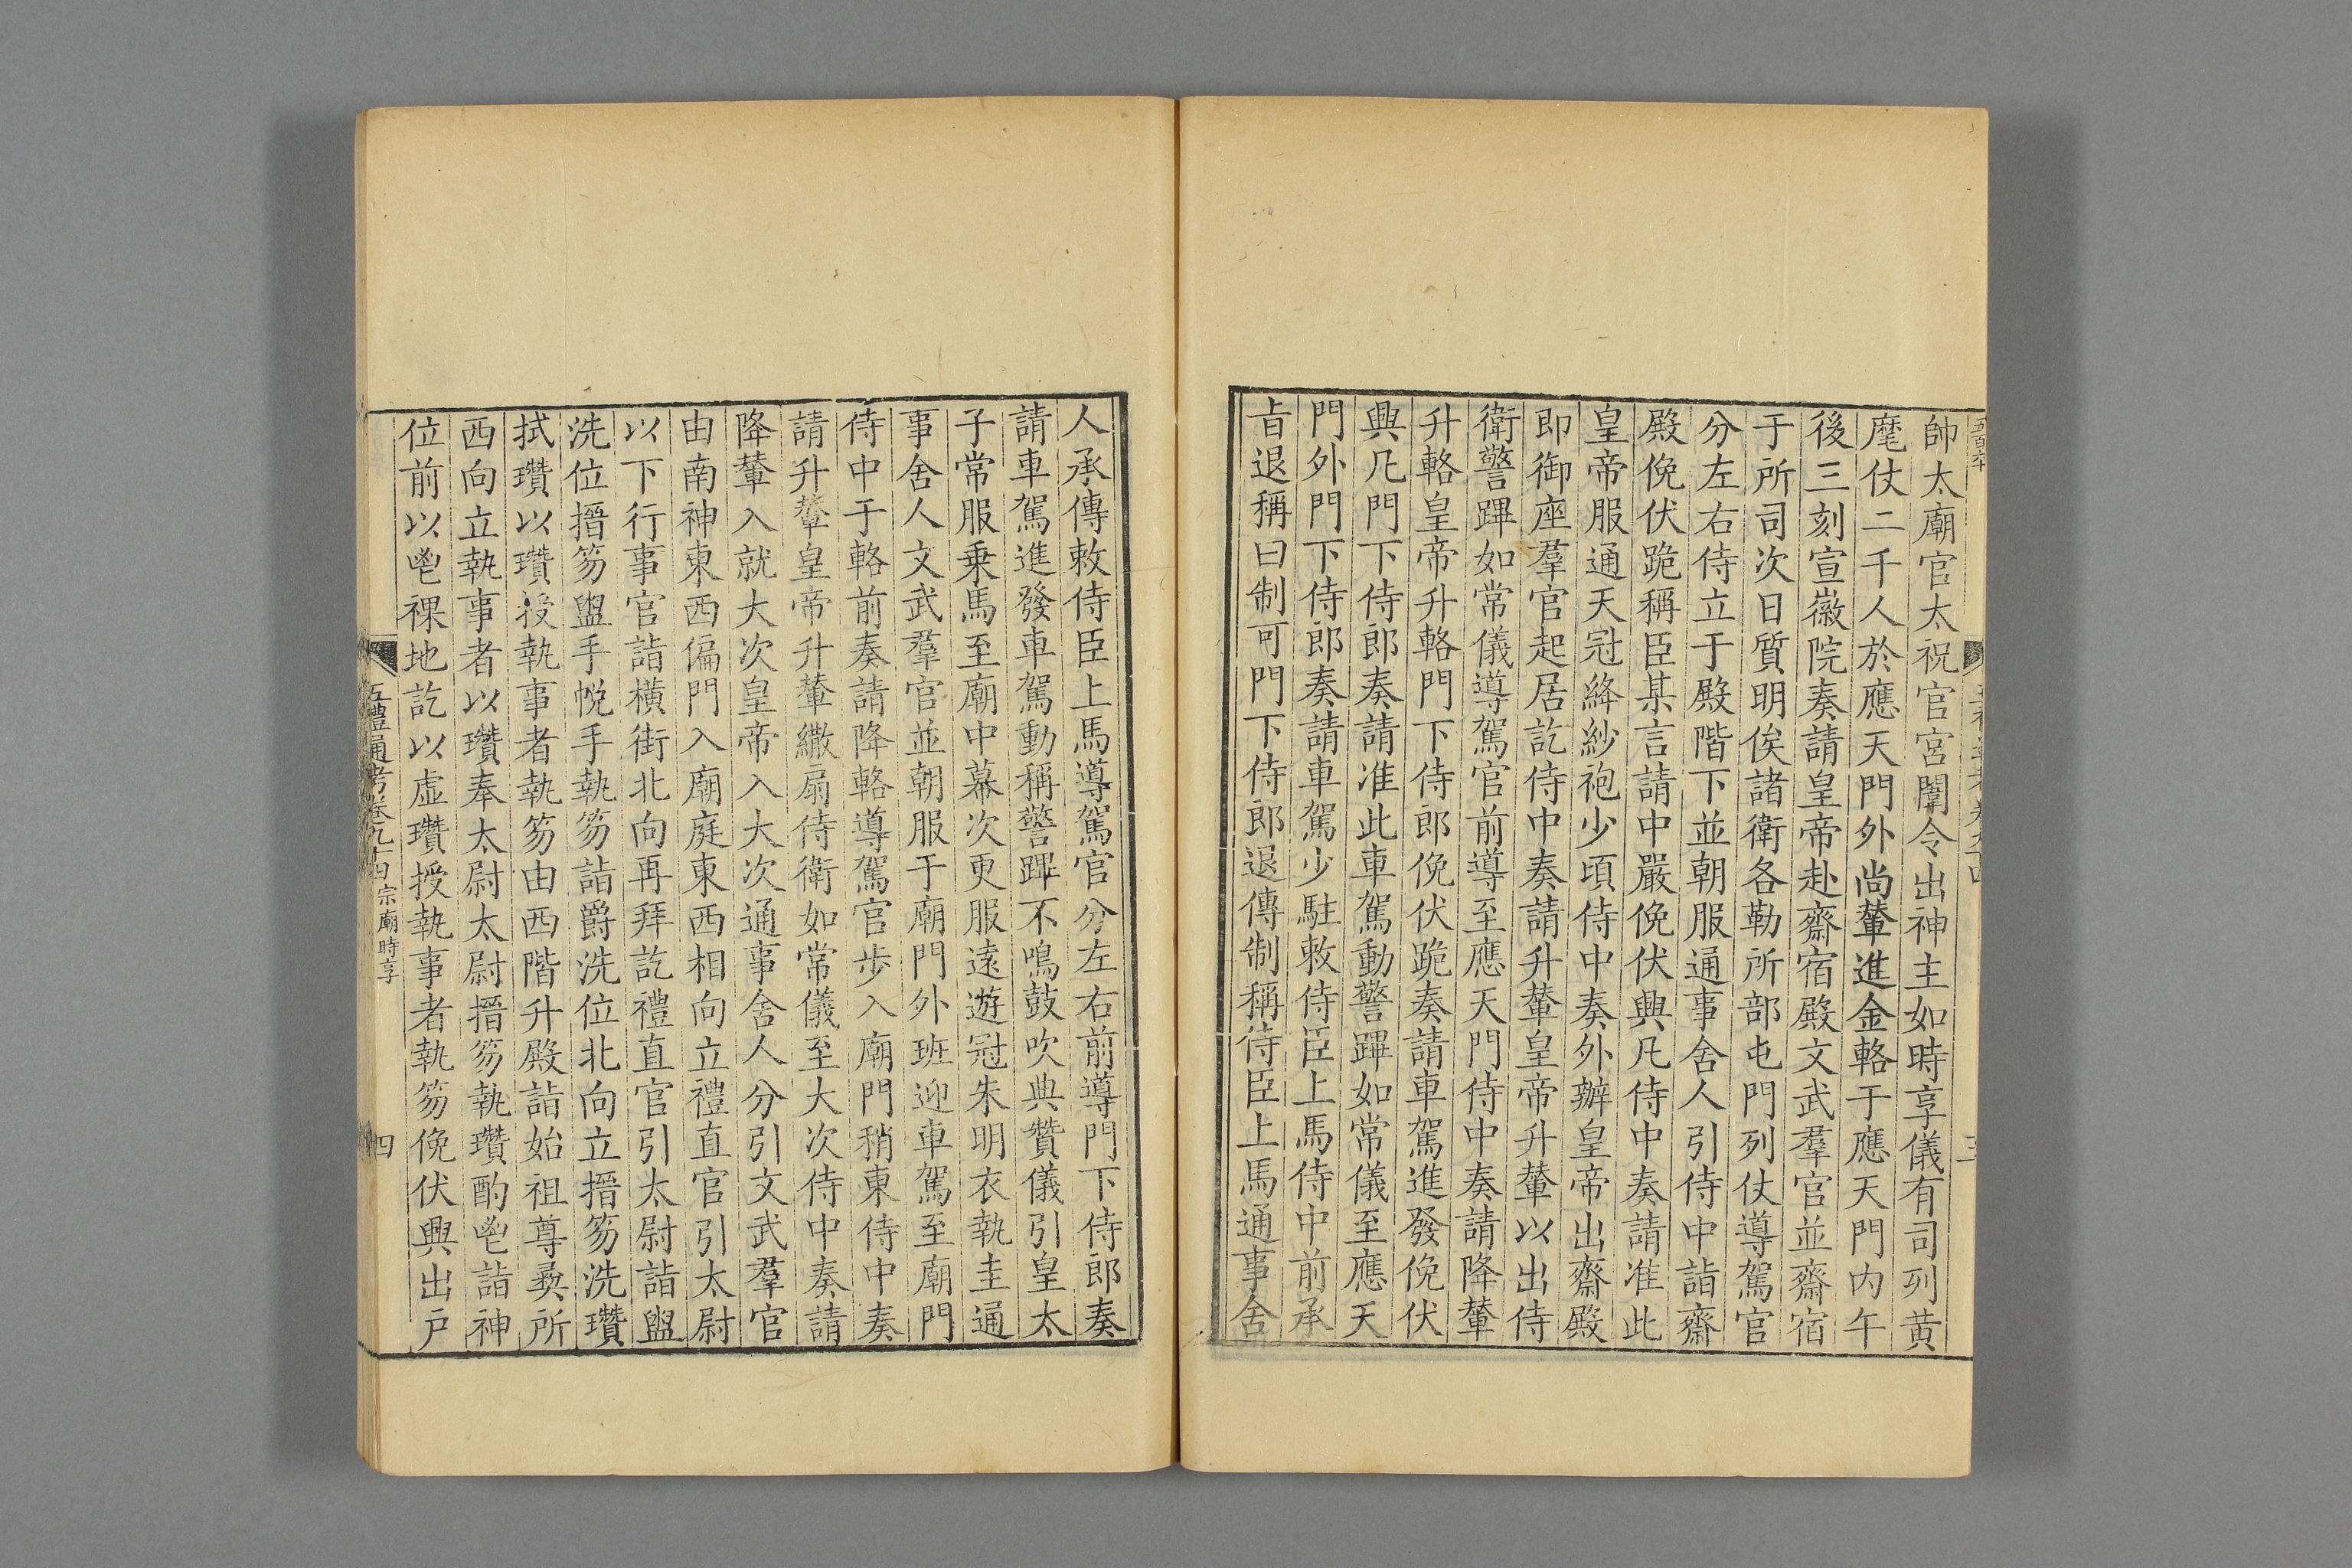 帥太廟官太祝官宮闈令出神主如時享儀有司列黃
麾仗二千人於應天門外尚輦進金輅于應天門內午
後三刻宣徽院奏請皇帝赴齋宿殿文武羣官並齋宿
于所司次日質明俟諸衛各勒所部屯門列仗導駕官
分左右侍立于殿階下並朝服通事舍人引侍中詣齋
殿俛伏跪稱臣某言請中嚴俛伏興凡侍中奏請准此
皇帝服通天冠絳紗袍少頃侍中奏外辦皇帝出齋殿
即御座羣官起居訖侍中奏請升輦皇帝升輦以出侍
衛警蹕如常儀導駕官前導至應天門侍中奏請降輦
升輅皇帝升輅門下侍郎俛伏跪奏請車駕進發俛伏
興凡門下侍郎奏請准此車駕動警蹕如常儀至應天
門外門下侍郎奏請車駕少駐敕侍臣上馬侍中前承
旨退稱曰制可門下侍郎退傳制稱侍臣上馬通事舍
人承傳敕侍臣上馬導駕官分左右前導門下侍郎奏
請車駕進發車駕動稱警蹕不鳴鼓吹典贊儀引皇太
子常服乗馬至廟中幕次更服遠遊冠朱明衣執圭通
事舍人文武羣官並朝服于廟門外班迎車駕至廟門
侍中于輅前奏請降輅導駕官步入廟門稍東侍中奏
請升輦皇帝升輦繖扇侍衛如常儀至大次侍中奏請
降輦入就大次皇帝入大次通事舍人分引文武羣官
由南神東西偏門入廟庭東西相向立禮直官引太尉
以下行事官詣橫街北向再拜訖禮直官引太尉詣盥
洗位搢笏盥手帨手執笏詣爵洗位北向立搢笏洗瓚
拭瓚以瓚授執事者執笏由西階升殿詣始祖尊彝所
西向立執事者以瓚奉太尉太尉搢笏執瓚酌鬯詣神
位前以鬯祼地訖以虛瓚授執事者執笏俛伏興出戶
五禮通考卷九十四 宗廟時享
四